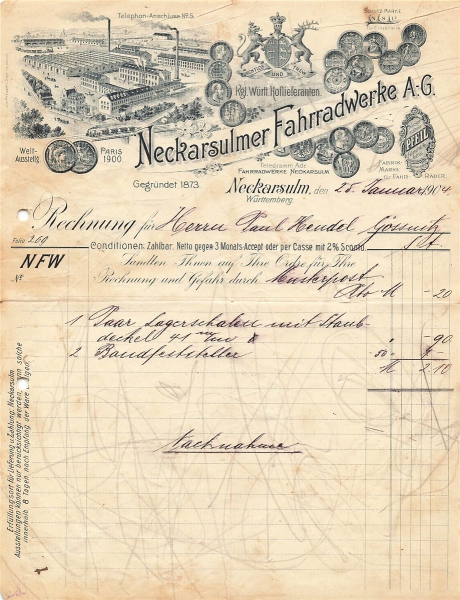 Telephon-Anschluss No 5.
Schutz-Marke
FURCHTLOS UND TREW
Kgl. Württ. Hoflieferanten.
Neckarsulmer Fahrradwerke A.-G.
Welt-Ausstellg. PARIS 1900.
PFEIL
FABRIK-MARKE FÜR FAHRRÄDER.
Gegründet 1873.
Telegramm Adr.
FAHRRADWERKE NECKARSULM
Neckarsulm, den 25. Januar 1904
Württemberg
Rechnung für Herrn Paul Hendel, Gössnitz
Folio 200
S/A.
Conditionen: Zahlbar: Netto gegen 3 Monats-Accept oder per Casse mit 2% Sconto.
NFW
Sandten Ihnen auf Ihre Ordre für Ihre
No
Rechnung und Gefahr durch Musterpost
Porto M – 20
1 Paar Lagerschalen mit Staub-
deckel 41 mm – 90
2 Bandfeststeller 50 1 –
M 2 10
Nachnahme
Erfüllungsort für Lieferung u. Zahlung: Neckarsulm
Ausstellungen können nur berücksichtigt werden, wenn solche
innerhalb 8 Tagen nach Empfang der Ware erfolgen.